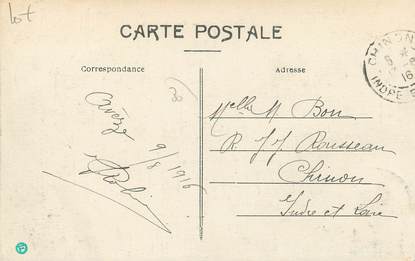 lot
CARTE POSTALE
Correspondance
Adresse
CHINON
16
INDRE E
Avèze
9/8/1916
Melle M Bon
R. J J Rousseau
Chinon
Indre et Loire